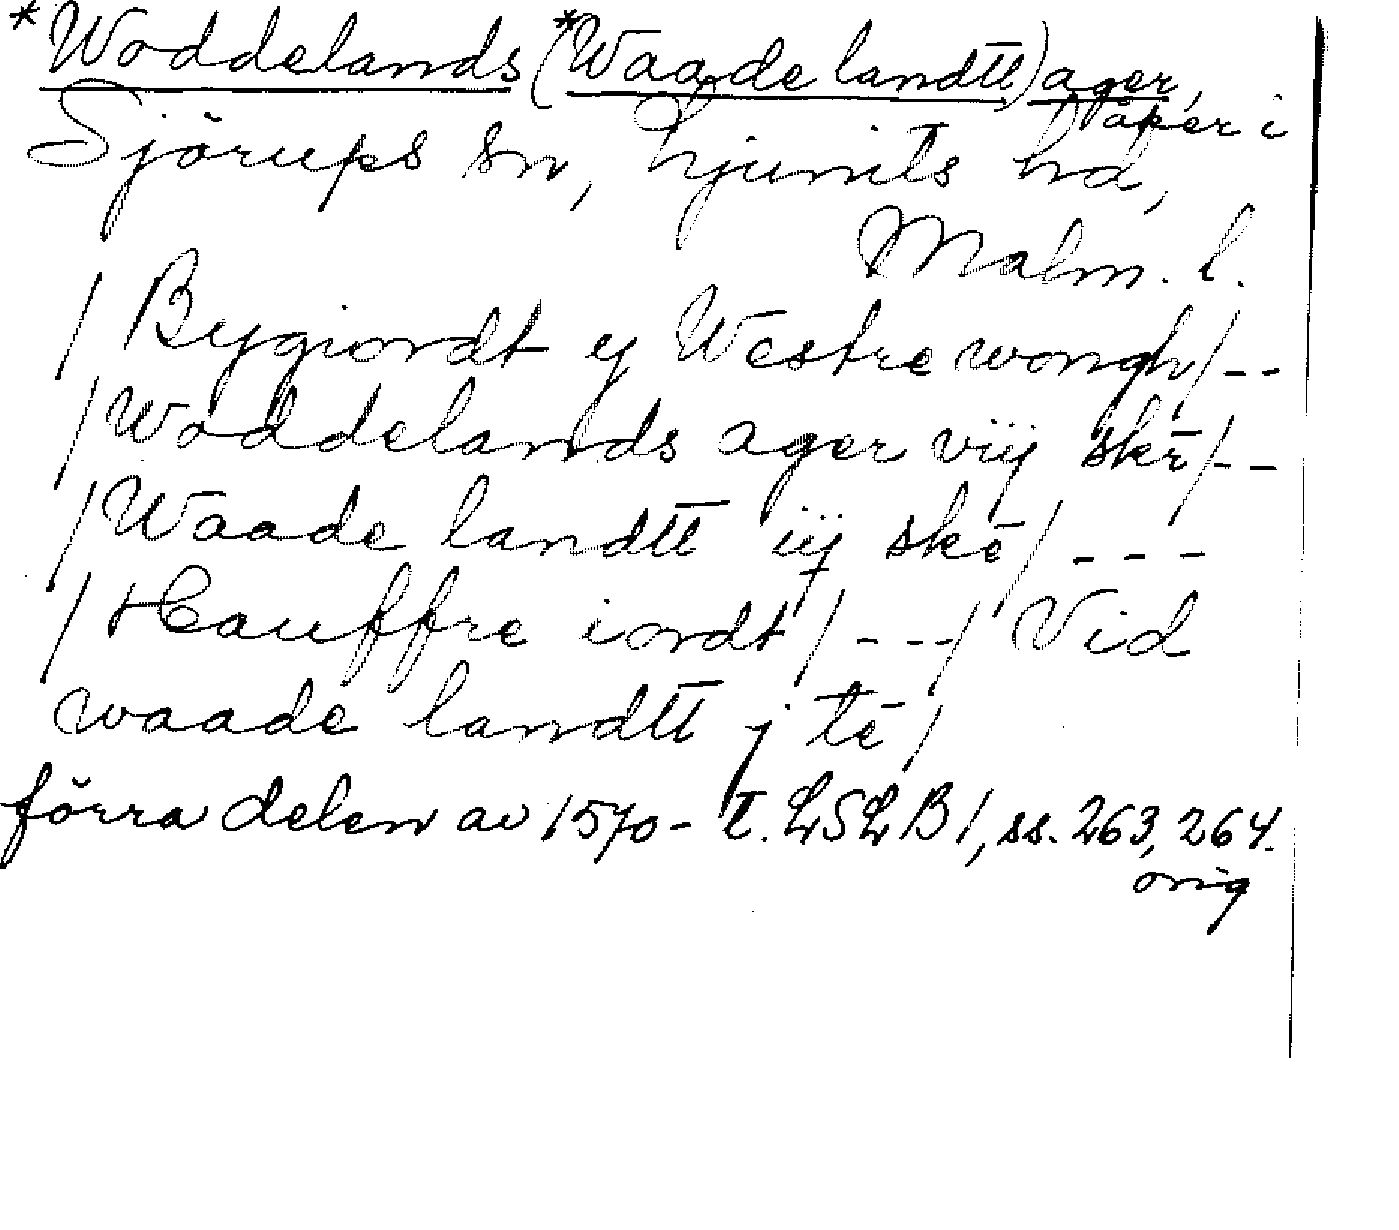 *Woddelands (*Waade landtt) ager,
åker i
Sjörups sn, Ljunits hd,
Malm. l.
/ Bygiordt y Westre wongh/--
/Woddelands ager vij skē/--
/Waade landtt iij skē/---
/Hauffre iordt/---/ Vid
waade landtt j tē/
förra delen av 1570-t. LSLB1, ss. 263, 264.
orig